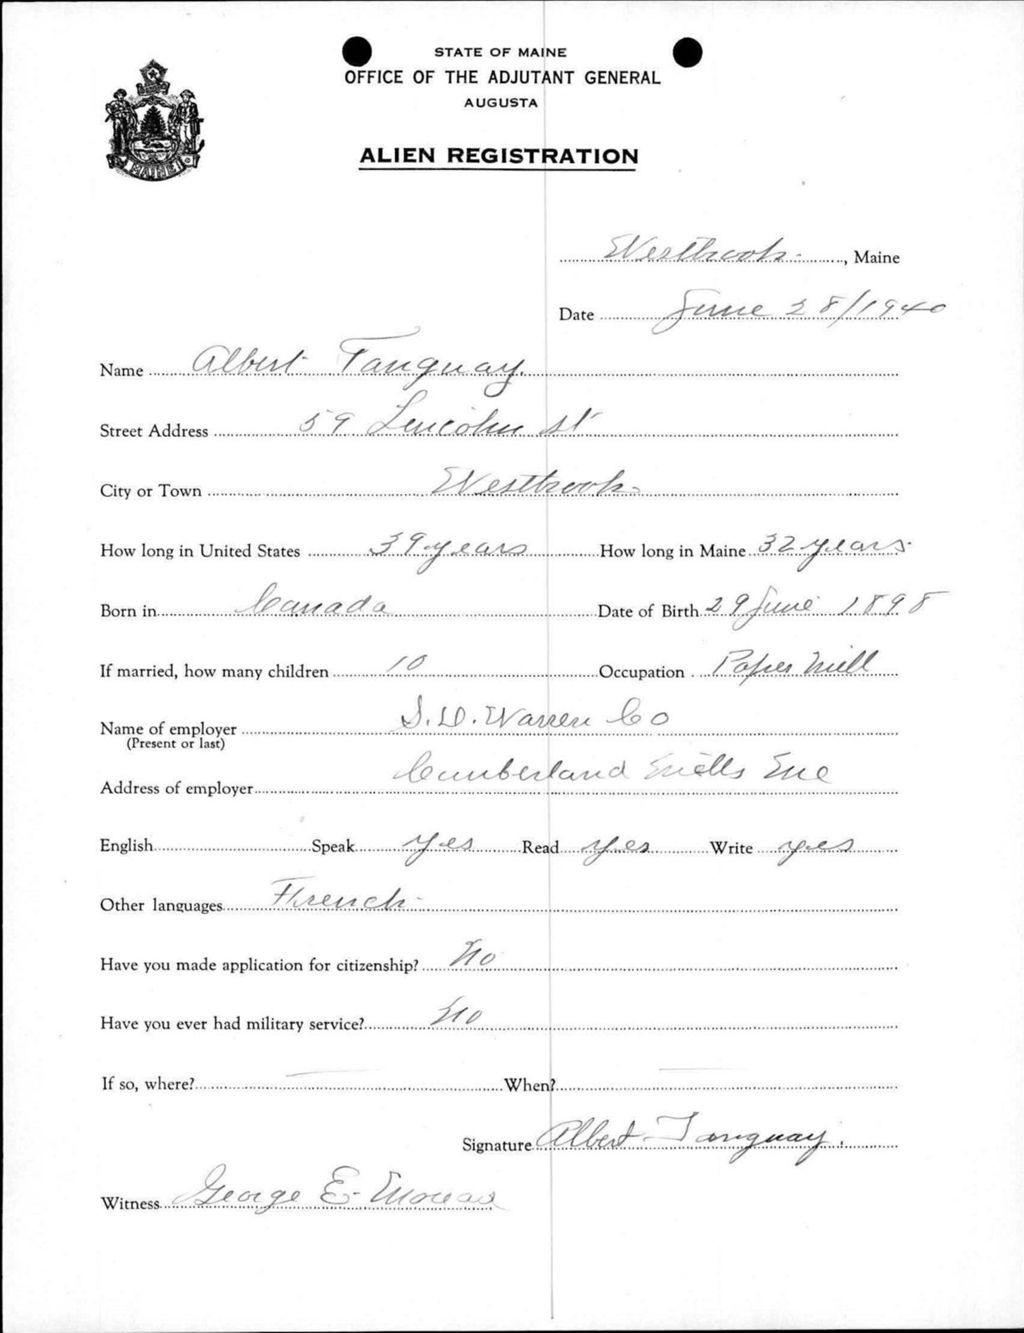 STATE OF MAINE
OFFICE OF THE ADJUTANT GENERAL
AUGUSTA
ALIEN REGISTRATION
MAINE
Westbrook, Maine
Date June 28/1940
Name Albert Tanguay
Street Address 59 Lincoln St
City or Town Westbrook
How long in United States 39 years How long in Maine 32 years
Born in Canada Date of Birth 29 June 1898
If married, how many children 10 Occupation Paper Mill
Name of employer S.D. Warren Co
(Present or last)
Address of employer Cumberland Mills Me
English Speak yes Read yes Write yes
Other languages French
Have you made application for citizenship? No
Have you ever had military service? No
If so, where? — When? —
Signature Albert Tanguay.
Witness George E.